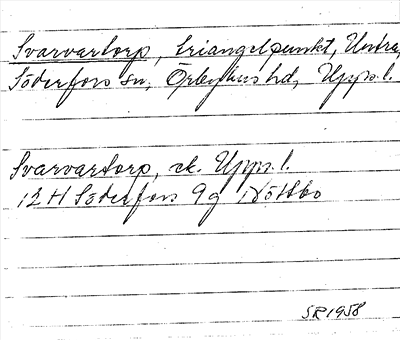 Svarvartorp, triangelpunkt, Untra,
Söderfors sn, Örbyhus hd, Upps. l.
Svarvartorp, ek. Upps. l.
12 H Söderfors 9g Nöttbo
SR 1958